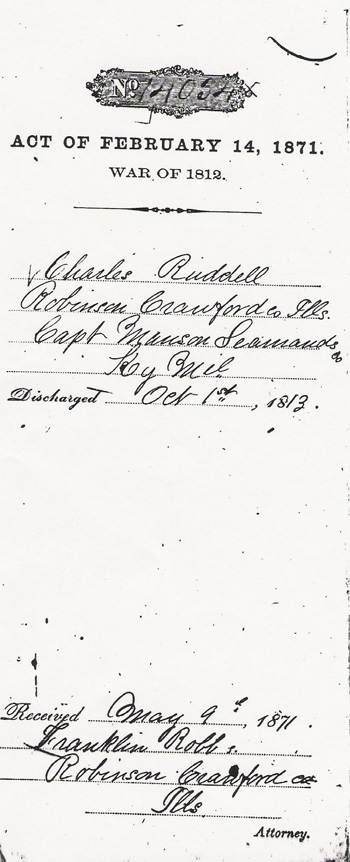 No 14054
ACT OF FEBRUARY 14, 1871.
WAR OF 1812.
Charles Ruddell
Robinson Crawford co Ills.
Capt Manson Seamands
Ky Mil
Discharged Oct 1st, 1813.
Received May 9, 1871.
Franklin Robb
Robinson Crawford co
Ills
Attorney.